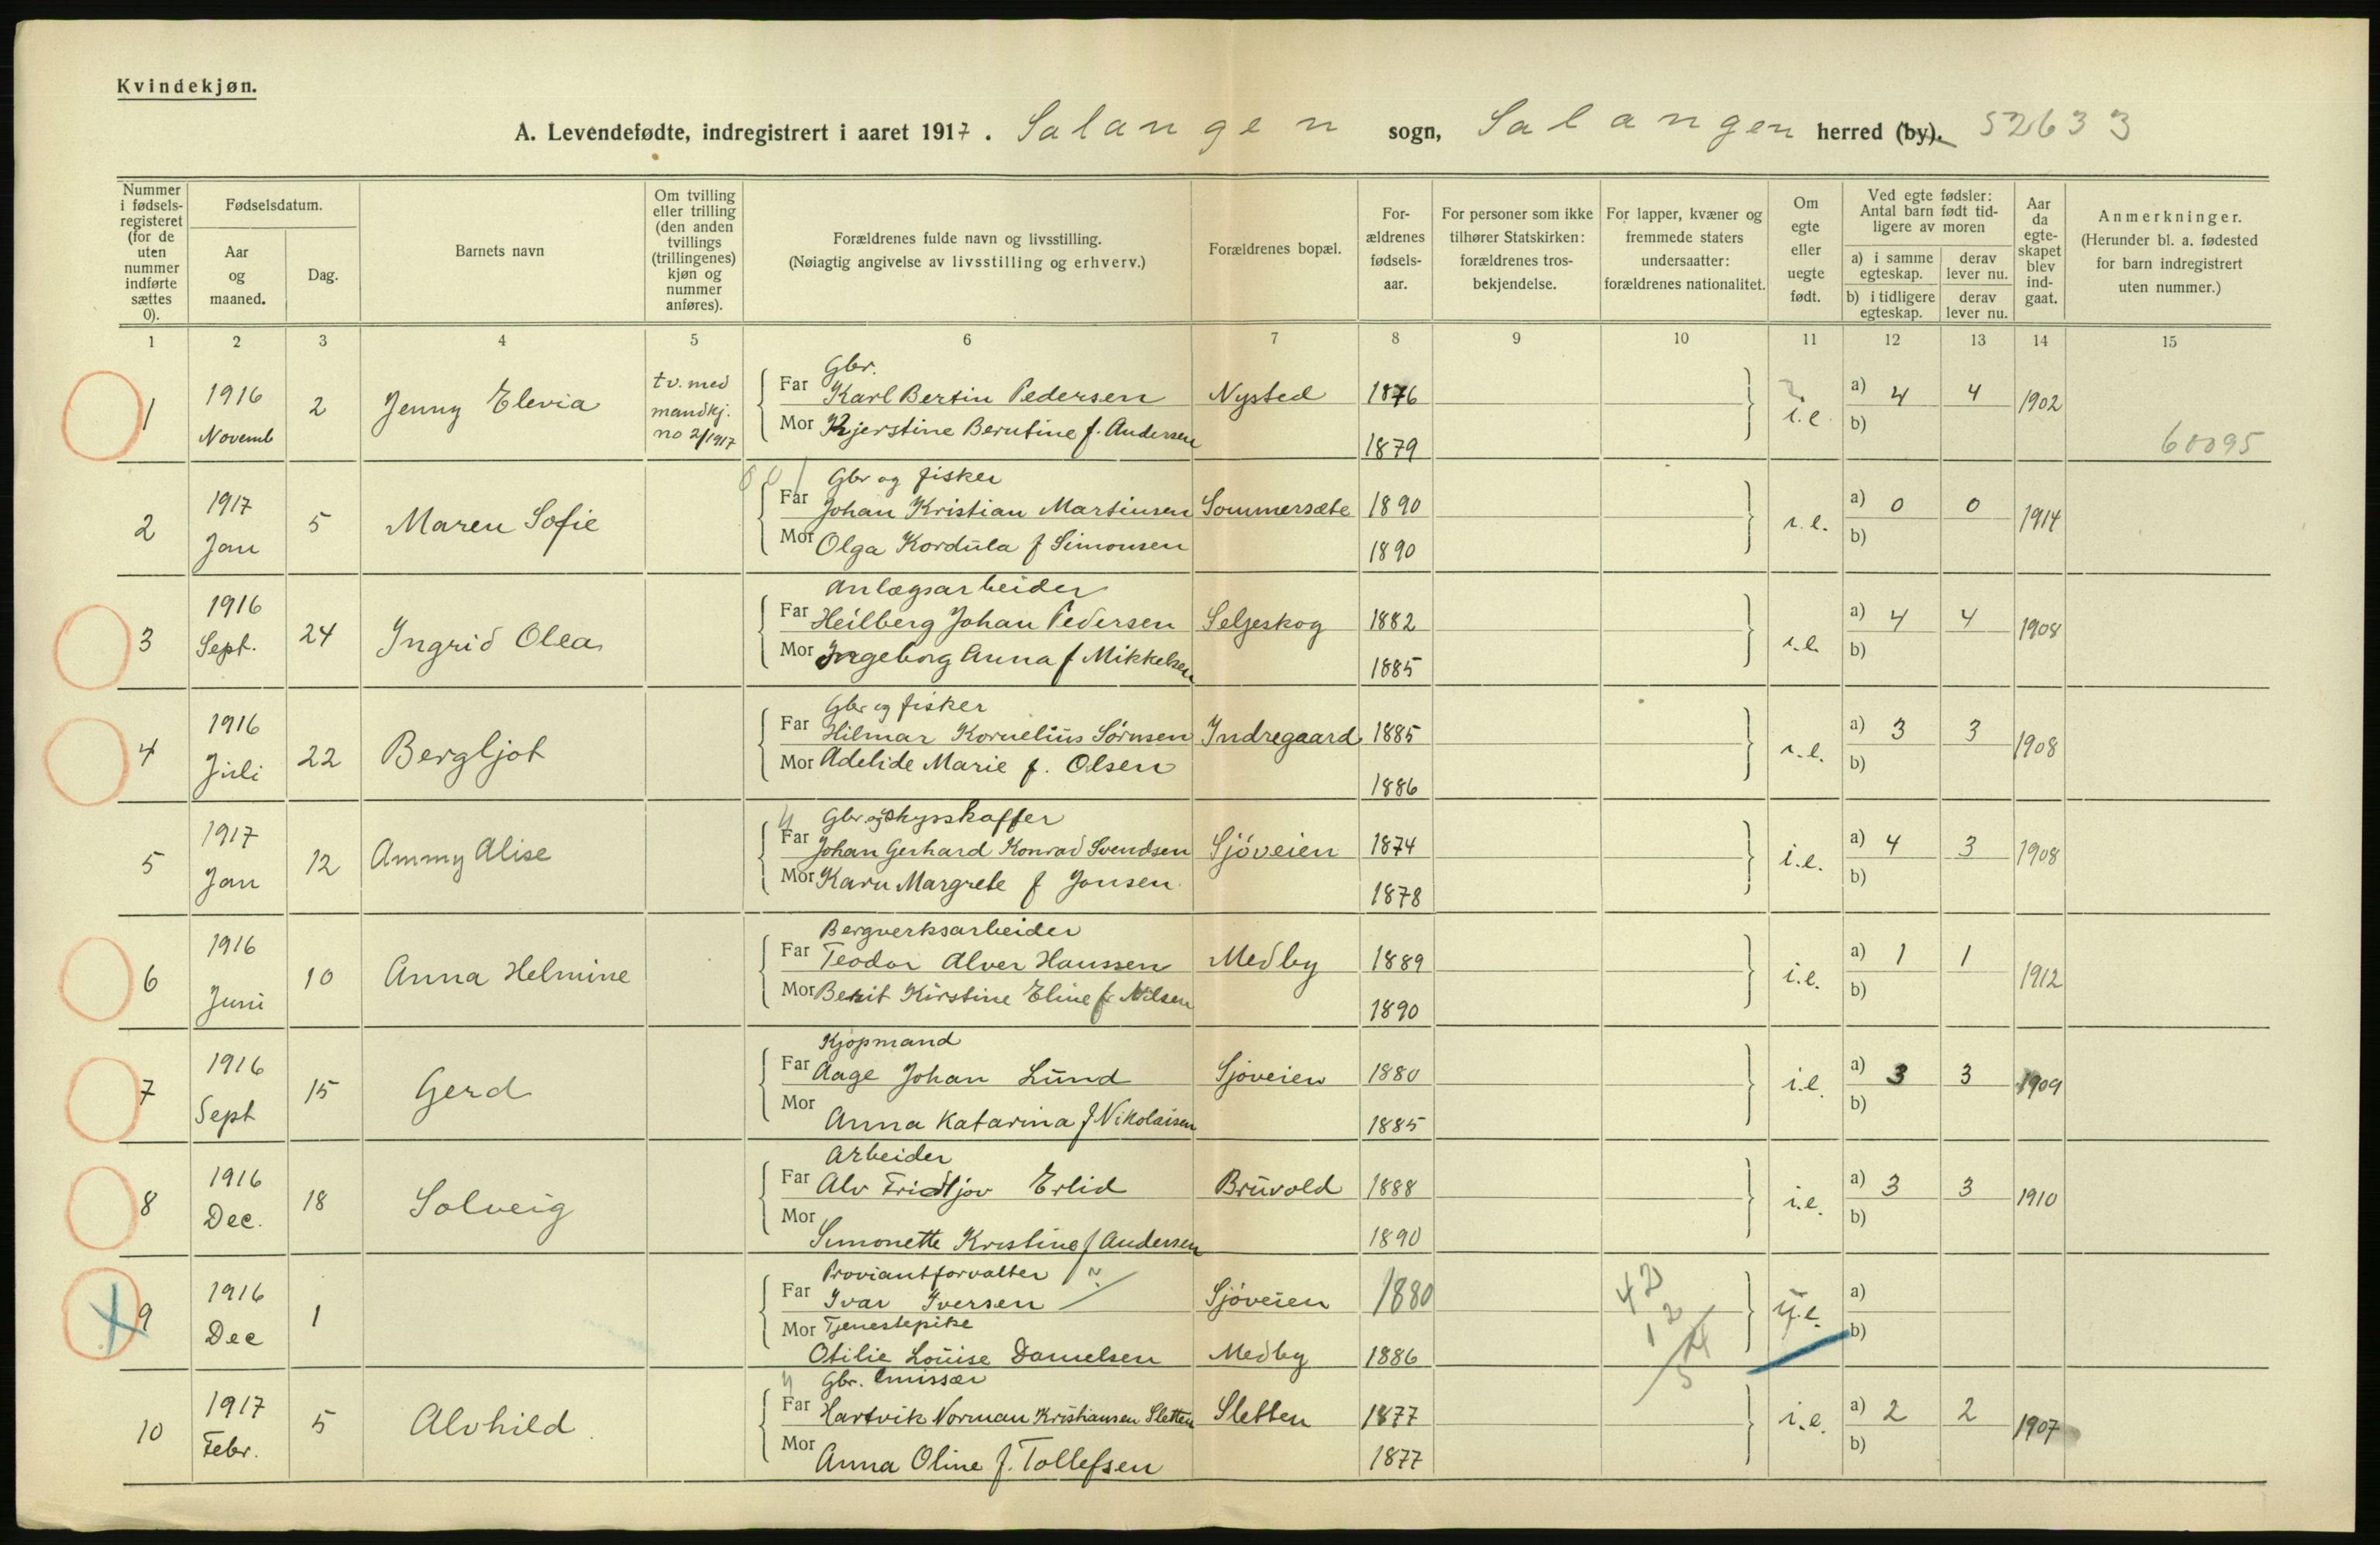 Kvindekjøn.
A. Levendefødte, indregistrert i aaret 1917. Salangen sogn, Salangen herred (by). 52633
Nummer i fødselsregisteret (for de uten nummer indførte sættes 0).
Fødselsdatum.
Aar og maaned.
Dag.
Barnets navn
Om tvilling eller trilling (den anden tvillings (trillingenes) kjøn og nummer anføres).
Forældrenes fulde navn og livsstilling.
(Nøiagtig angivelse av livsstilling og erhverv.)
Forældrenes bopæl.
Forældrenes fødselsaar.
For personer som ikke tilhører Statskirken: forældrenes trosbekjendelse.
For lapper, kvæner og fremmede staters undersaatter: forældrenes nationalitet.
Om egte eller uegte født.
Ved egte fødsler: Antal barn født tidligere av moren
a) i samme egteskap.
derav lever nu.
b) i tidligere egteskap.
derav lever nu.
Aar da egteskapet blev indgaat.
Anmerkninger.
(Herunder bl. a. fødested for barn indregistrert uten nummer.)
1 2 3 4 5 6 7 8 9 10 11 12 13 14 15
1 1916 Novemb 2 Jenny Elevia tv. med mandkj. no 2/1917
Gbr.
Far Karl Bertin Pedersen Nysted 1876 i.e. a) 4 4 1902
Mor Kjerstine Berntine f. Andersen 1879 b)
60095
2 1917 Jan 5 Maren Sofie
Gbr og fisker
Far Johan Kristian Martinsen Sommersæte 1890 i.e. a) 0 0 1914
Mor Olga Kordula f Simonsen 1890 b)
3 1916 Sept. 24 Ingrid Olea
Anlægsarbeider
Far Heilberg Johan Pedersen Seljeskog 1882 i.e. a) 4 4 1908
Mor Ingeborg Anna f Mikkelsen 1885 b)
4 1916 Juli 22 Bergljot
Gbr og fisker
Far Hilmar Kornelius Sørnsen Indregaard 1885 i.e. a) 3 3 1908
Mor Adelide Marie f. Olsen 1886 b)
5 1917 Jan 12 Ammy Alise
Gbr og skysskaffer
Far Johan Gerhard Konrad Svendsen Sjøveien 1874 i.e. a) 4 3 1908
Mor Karn Margrete f Jonsen 1878 b)
6 1916 Juni 10 Anna Helmine
Bergverksarbeider
Far Teodor Alver Hanssen Medby 1889 i.e. a) 1 1 1912
Mor Berit Kirstine Eline f. Nilsen 1890 b)
7 1916 Sept 15 Gerd
Kjøpmand
Far Aage Johan Lund Sjøveien 1880 i.e. a) 3 3 1909
Mor Anna Katarina f Nikolaisen 1885 b)
8 1916 Dec. 18 Solveig
Arbeider
Far Alv Fridtjov Erlid Bruvold 1888 i.e. a) 3 3 1910
Mor Simonette Kristine f Andersen 1890 b)
9 1916 Dec 1
Proviantforvalter
Far Ivar Iversen Sjøveien 1880 u.e. a)
Mor Tjenestepike
Otilie Louise Danielsen Medby 1886 b)
10 1917 Febr. 5 Alvhild.
Gbr. Emissær
Far Hartvik Norman Kristiansen Sletten Sletten 1877 i.e. a) 2 2 1907
Mor Anna Oline f. Tollefsen 1877 b)